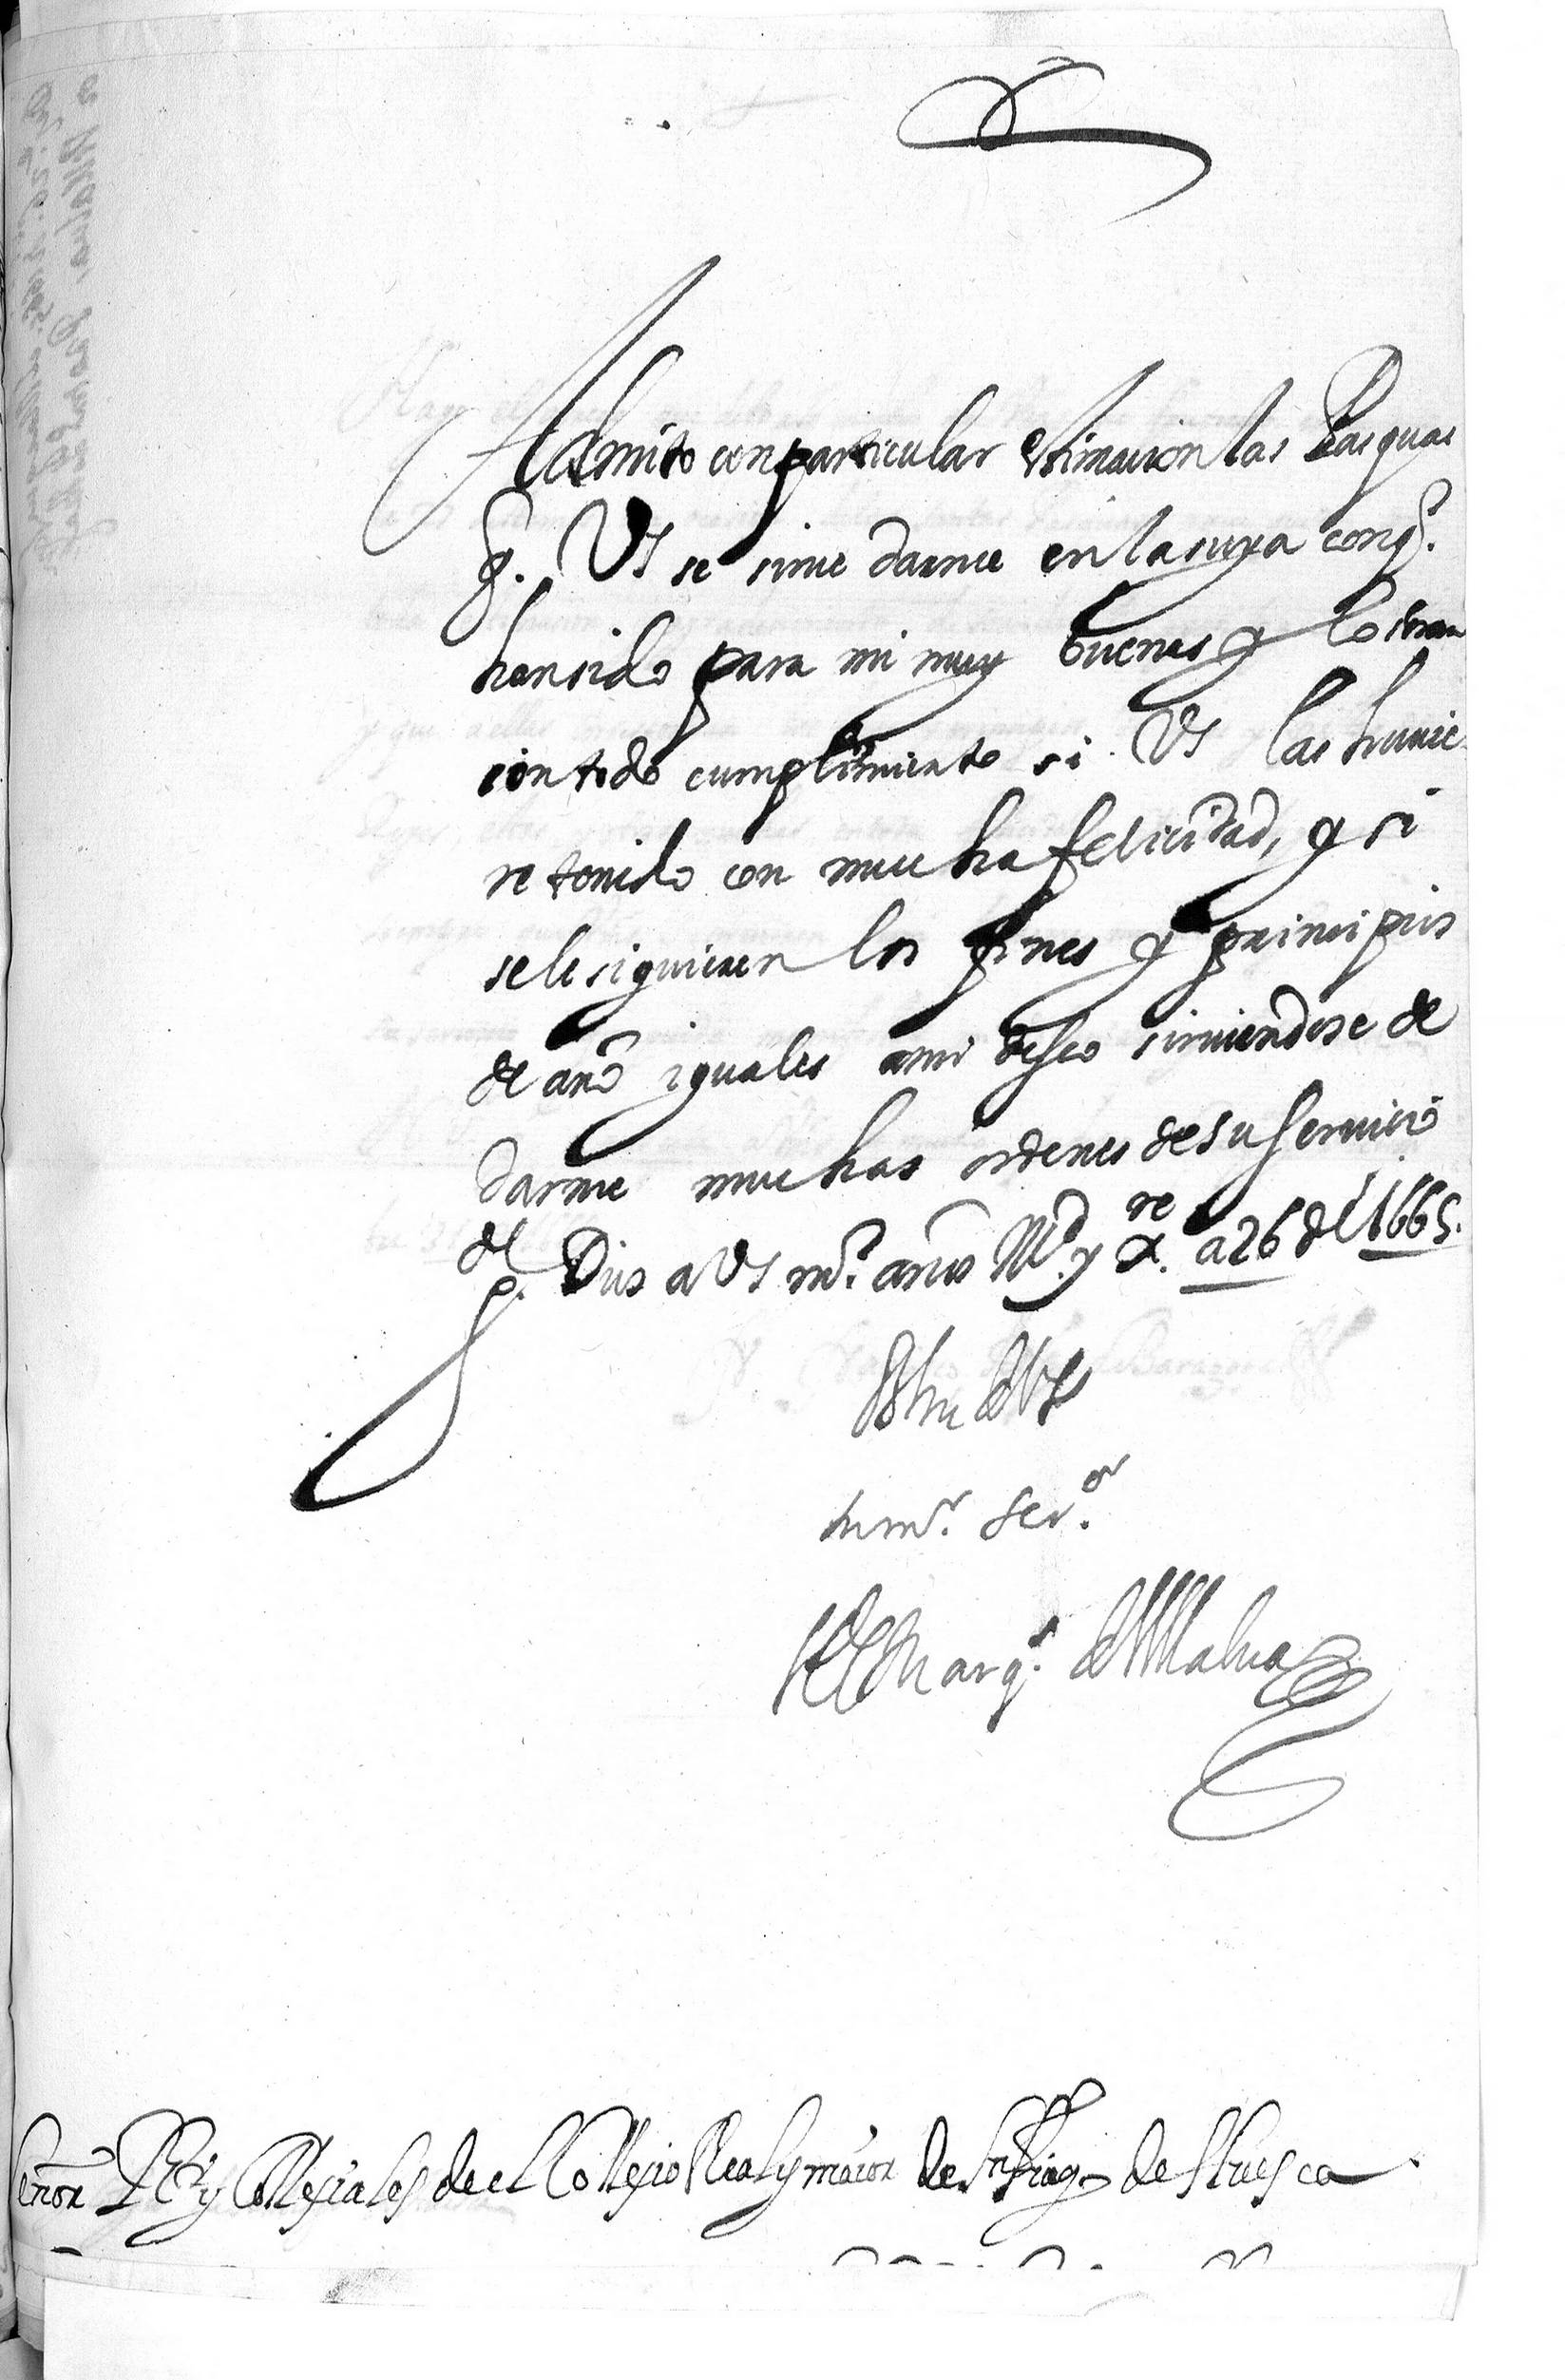 Admito con particular estimacion las Pasquas
q. VS se sirue darme en la suya con q.
han sido para mi muy buenas y lo seran
con todo cumplimiento si VS las huuie
re tenido con mucha felicidad, y si
se le siguieren los fines y principios
de año iguales a mi desseo siruiendose de
darme muchas ordenes de su seruicio
gde Dios a VS m.s años M.d y x.re a 26 de 1665.
BLm de VS
su m.r ser.or
El Marq.s de
Señor R.or y Collegiales de el Collegio Real y maior de Santiago de Huesca